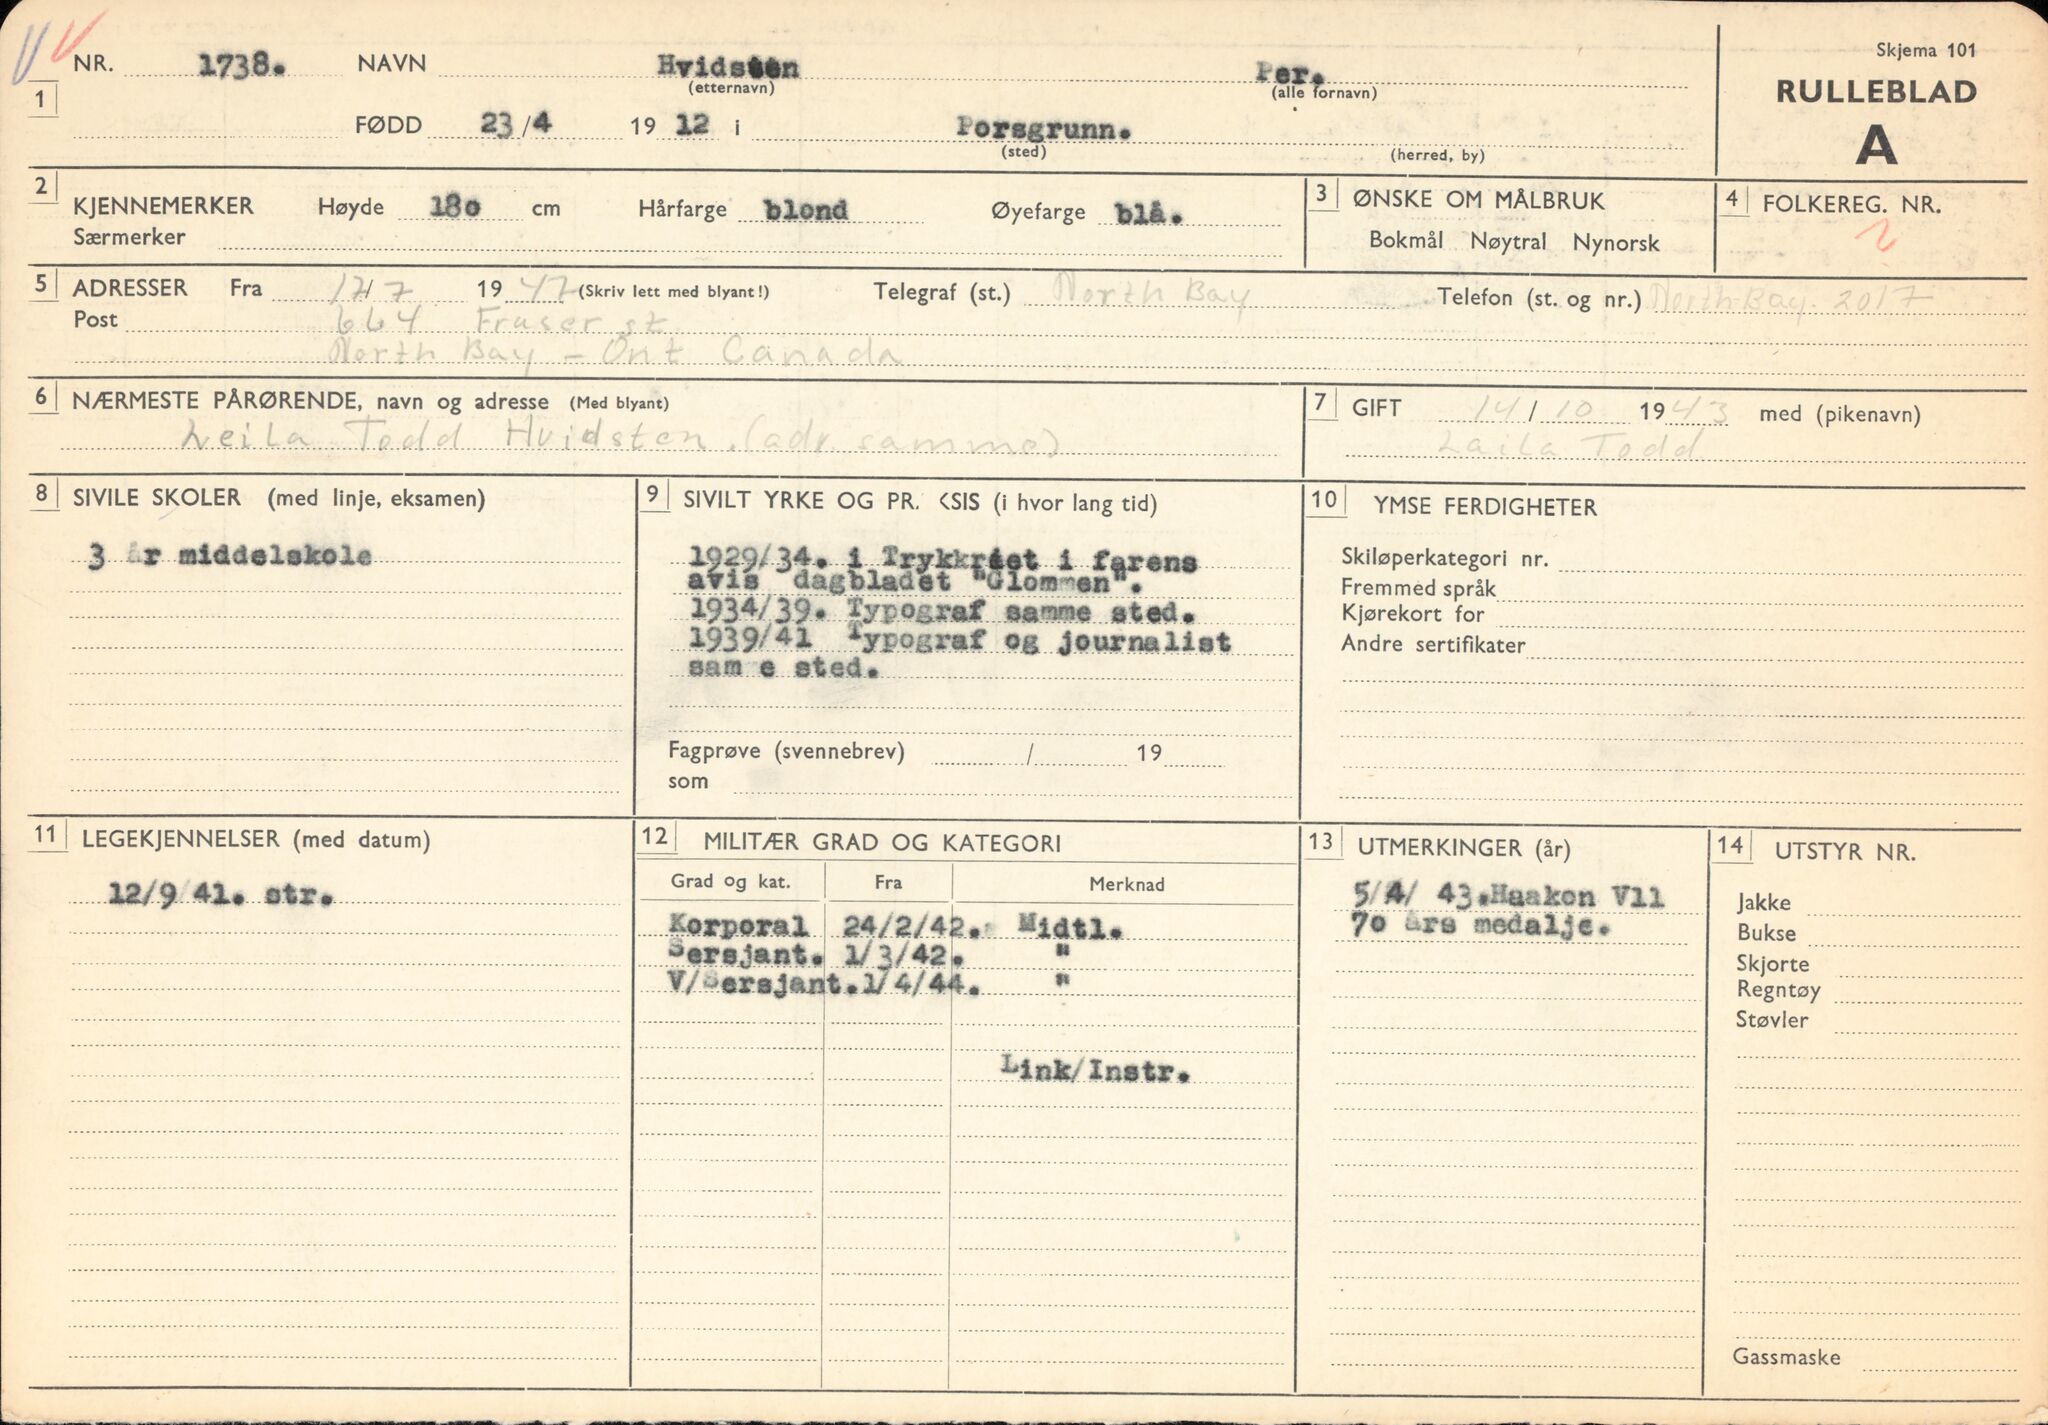 Skjema 101
RULLEBLAD
A
1 NR. 1738. NAVN Hvidsten Per.
(etternavn) (alle fornavn)
FØDD 23/4 1912 i Porsgrunn.
(sted) (herred, by)
2 KJENNEMERKER Høyde 180 cm Hårfarge blond Øyefarge blå.
Særmerker
3 ØNSKE OM MÅLBRUK
Bokmål Nøytral Nynorsk
4 FOLKEREG. NR.
5 ADRESSER Fra 17/7 1947 (Skriv lett med blyant!) Telegraf (st.) North Bay Telefon (st. og nr.) North Bay. 2017
Post 664 Fraser st
North Bay – Ont Canada
6 NÆRMESTE PÅRØRENDE, navn og adresse (Med blyant)
Leila Todd Hvidsten. (adr. samme)
7 GIFT 14/10 1943 med (pikenavn)
Laila Todd
8 SIVILE SKOLER (med linje, eksamen)
3 år middelskole
9 SIVILT YRKE OG PR. KSIS (i hvor lang tid)
1929/34. i Trykkriet i farens
avis dagbladet "Glommen".
1934/39. Typograf samme sted.
1939/41 Typograf og journalist
sam e sted.
Fagprøve (svennebrev) / 19
som
10 YMSE FERDIGHETER
Skiløperkategori nr.
Fremmed språk
Kjørekort for
Andre sertifikater
11 LEGEKJENNELSER (med datum)
12/9/41. str.
12 MILITÆR GRAD OG KATEGORI
Grad og kat. Fra Merknad
Korporal 24/2/42. Midtl.
Sersjant. 1/3/42. "
V/Sersjant. 1/4/44. "
Link/Instr.
13 UTMERKINGER (år)
5/4/ 43. Haakon V11
70 års medalje.
14 UTSTYR NR.
Jakke
Bukse
Skjorte
Regntøy
Støvler
Gassmaske